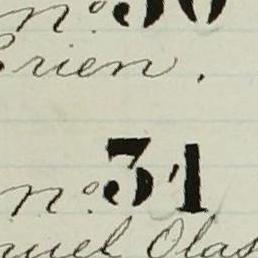 nº 30
rien.
nº 31
nuel Olas